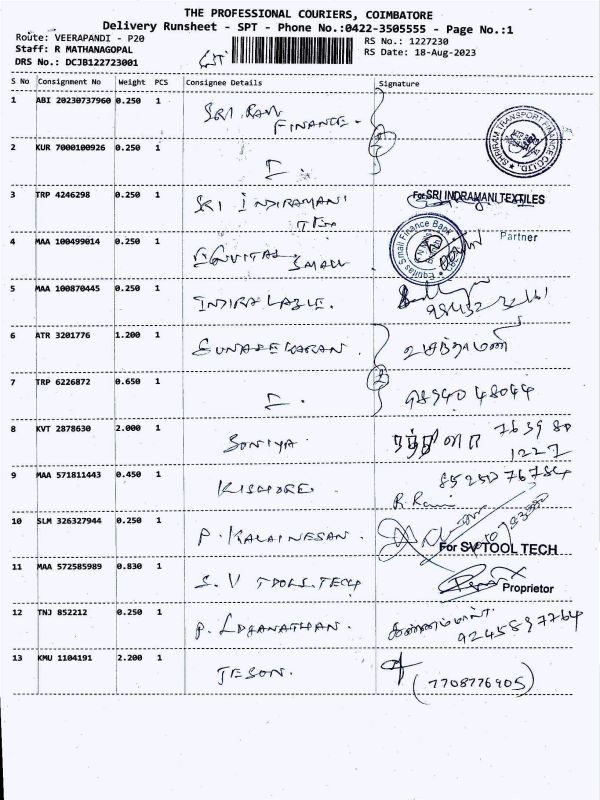 THE PROFESSIONAL COURIERS, COIMBATORE
Delivery Runsheet - SPT - Phone No.:0422-3505555 - Page No.:1
Route: VEERAPANDI - P20
Staff: R MATHANAGOPAL
DRS No.: DCJB122723001
RS No.: 1227230
RS Date: 18-Aug-2023
S No Consignment No Weight PCS Consignee Details Signature
1 ABI 20230737960 0.250 1 SRI RAM FINANCE.
SHRIRAM TRANSPORT FINANCE CO.LTD.
2 KUR 7000100926 0.250 1
3 TRP 4246298 0.250 1 SRI INDIRAMANI TEX
For SRI INDRAMANI TEXTILES
Partner
4 MAA 100499014 0.250 1 EQUITAS SMALL
Equitas Small Finance Bank
5 MAA 100870445 0.250 1 INDIRA
6 ATR 3201776 1.200 1 GUNASEKARAN.
7 TRP 6226872 0.650 1 98940 48044
8 KVT 2878630 2.000 1 SONIYA. 763980
1227
9 MAA 571811443 0.450 1 KISHORE.
10 SLM 326327944 0.250 1 P. KALAINESAN.
For SV TOOL TECH
11 MAA 572585989 0.830 1 S.V TOOLS. TECH
Proprietor
12 TNJ 852212 0.250 1 P. LOGANATHAN.
9245897764
13 KMU 1104191 2.200 1 JESON.
(7708776905)